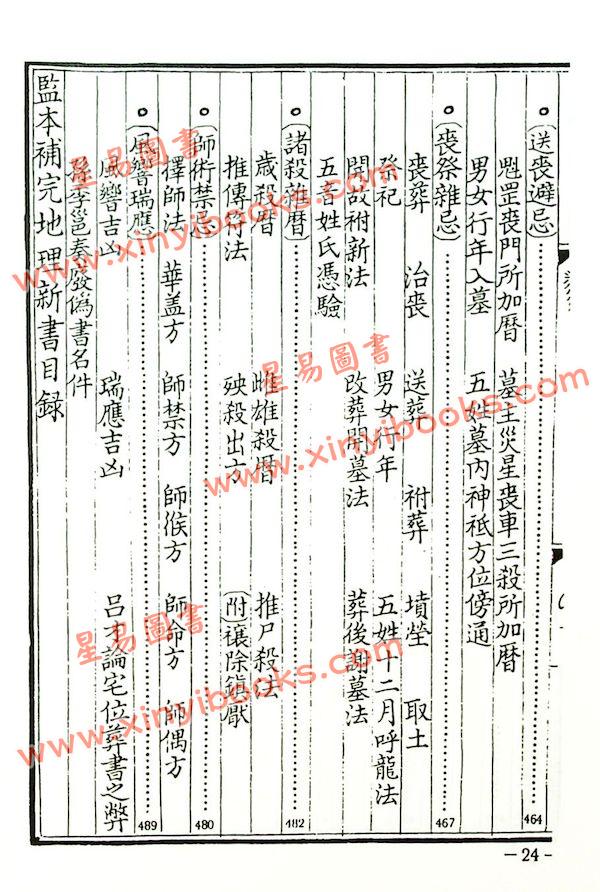 (送喪避忌)……464
魁罡喪門所加曆 墓土災星喪車三殺所加曆
男女行年入墓 五姓墓內神祗方位傍通
(喪祭雜忌)……467
喪葬 治喪 送葬 祔葬 墳塋 取土
祭祀 男女行年 五姓十二月呼龍法
開故祔新法 改葬開墓法 葬後謝墓法
五音姓氏憑驗
(諸殺雜曆)……482
歲殺曆 雌雄殺曆 推尸殺法
推傳符法 殃殺出方 (附)禳除鎮厭
(師術禁忌)……480
擇師法 華盖方 師禁方 師候方 師命方 師偶方
(風響瑞應)……489
風響吉凶 瑞應吉凶 呂才論宅位葬書之弊
孫李邕奏廢偽書名件
監本補完地理新書目錄
-24-
星易圖書
www.xinyibooks.com
星易圖書
www.xinyibooks.com
星易圖書
www.xinyibooks.com